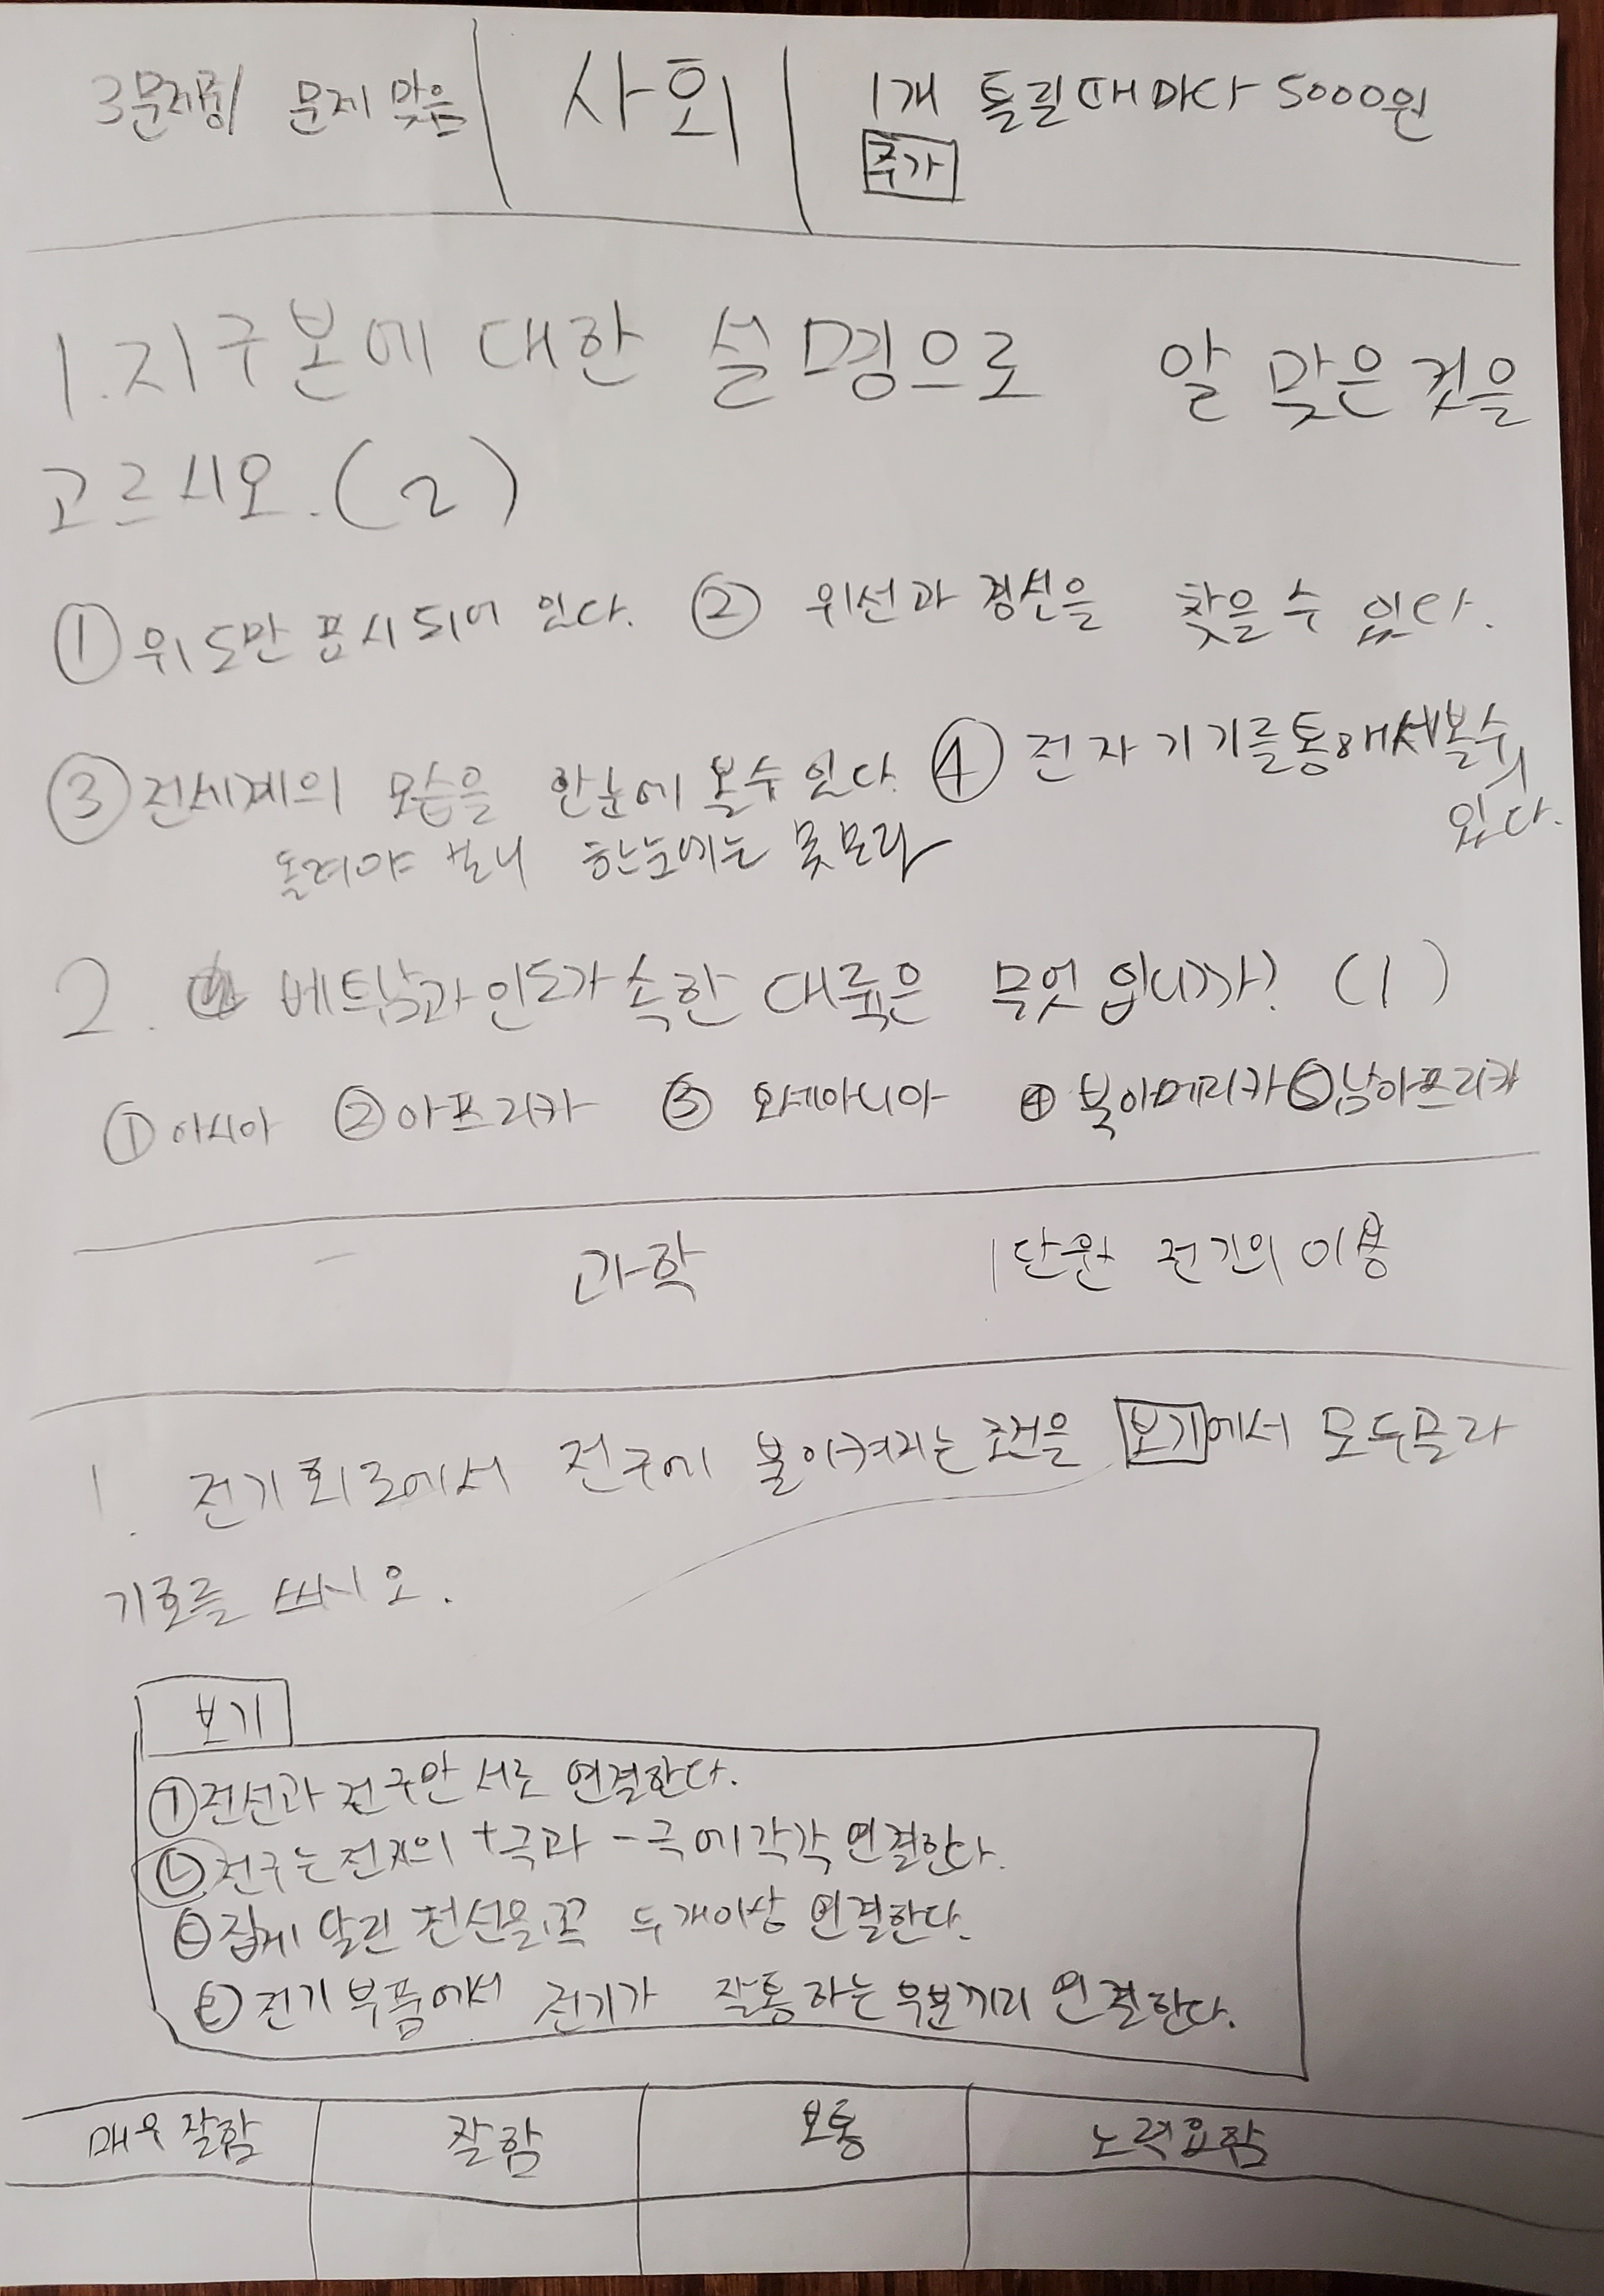 3문제중 문제 맞음 사회 1개 틀릴때마다 5000원
추가
1. 지구본에 대한 설명으로 알맞은것을
고르시오. (2)
① 위도만 표시되어 있다. ② 위선과 경선을 찾을 수 있다.
③ 전세계의 모습을 한눈에 볼수 있다. ④ 전자기기를통해서볼수
있다.
돌려야 보니 한눈에는 못보라
2. 베트남과 인도가 속한 대륙은 무엇 입니까? (1)
① 아시아 ② 아프리카 ③ 오세아니아 ④ 북아메리카 ⑤ 남아프리카
과학 1단원 전기의 이용
1. 전기회로에서 전구에 불이켜지는 조건을 보기에서 모두골라
기호를 쓰시오.
보기
㉠ 전선과 전구만 서로 연결한다.
㉡ 전구는 전지의 +극과 -극에 각각 연결한다.
㉢ 집게 달린 전선을 꼭 두개이상 연결한다.
㉣ 전기 부품에서 전기가 잘통하는 부분끼리 연결한다.
매우 잘함 잘함 보통 노력요함